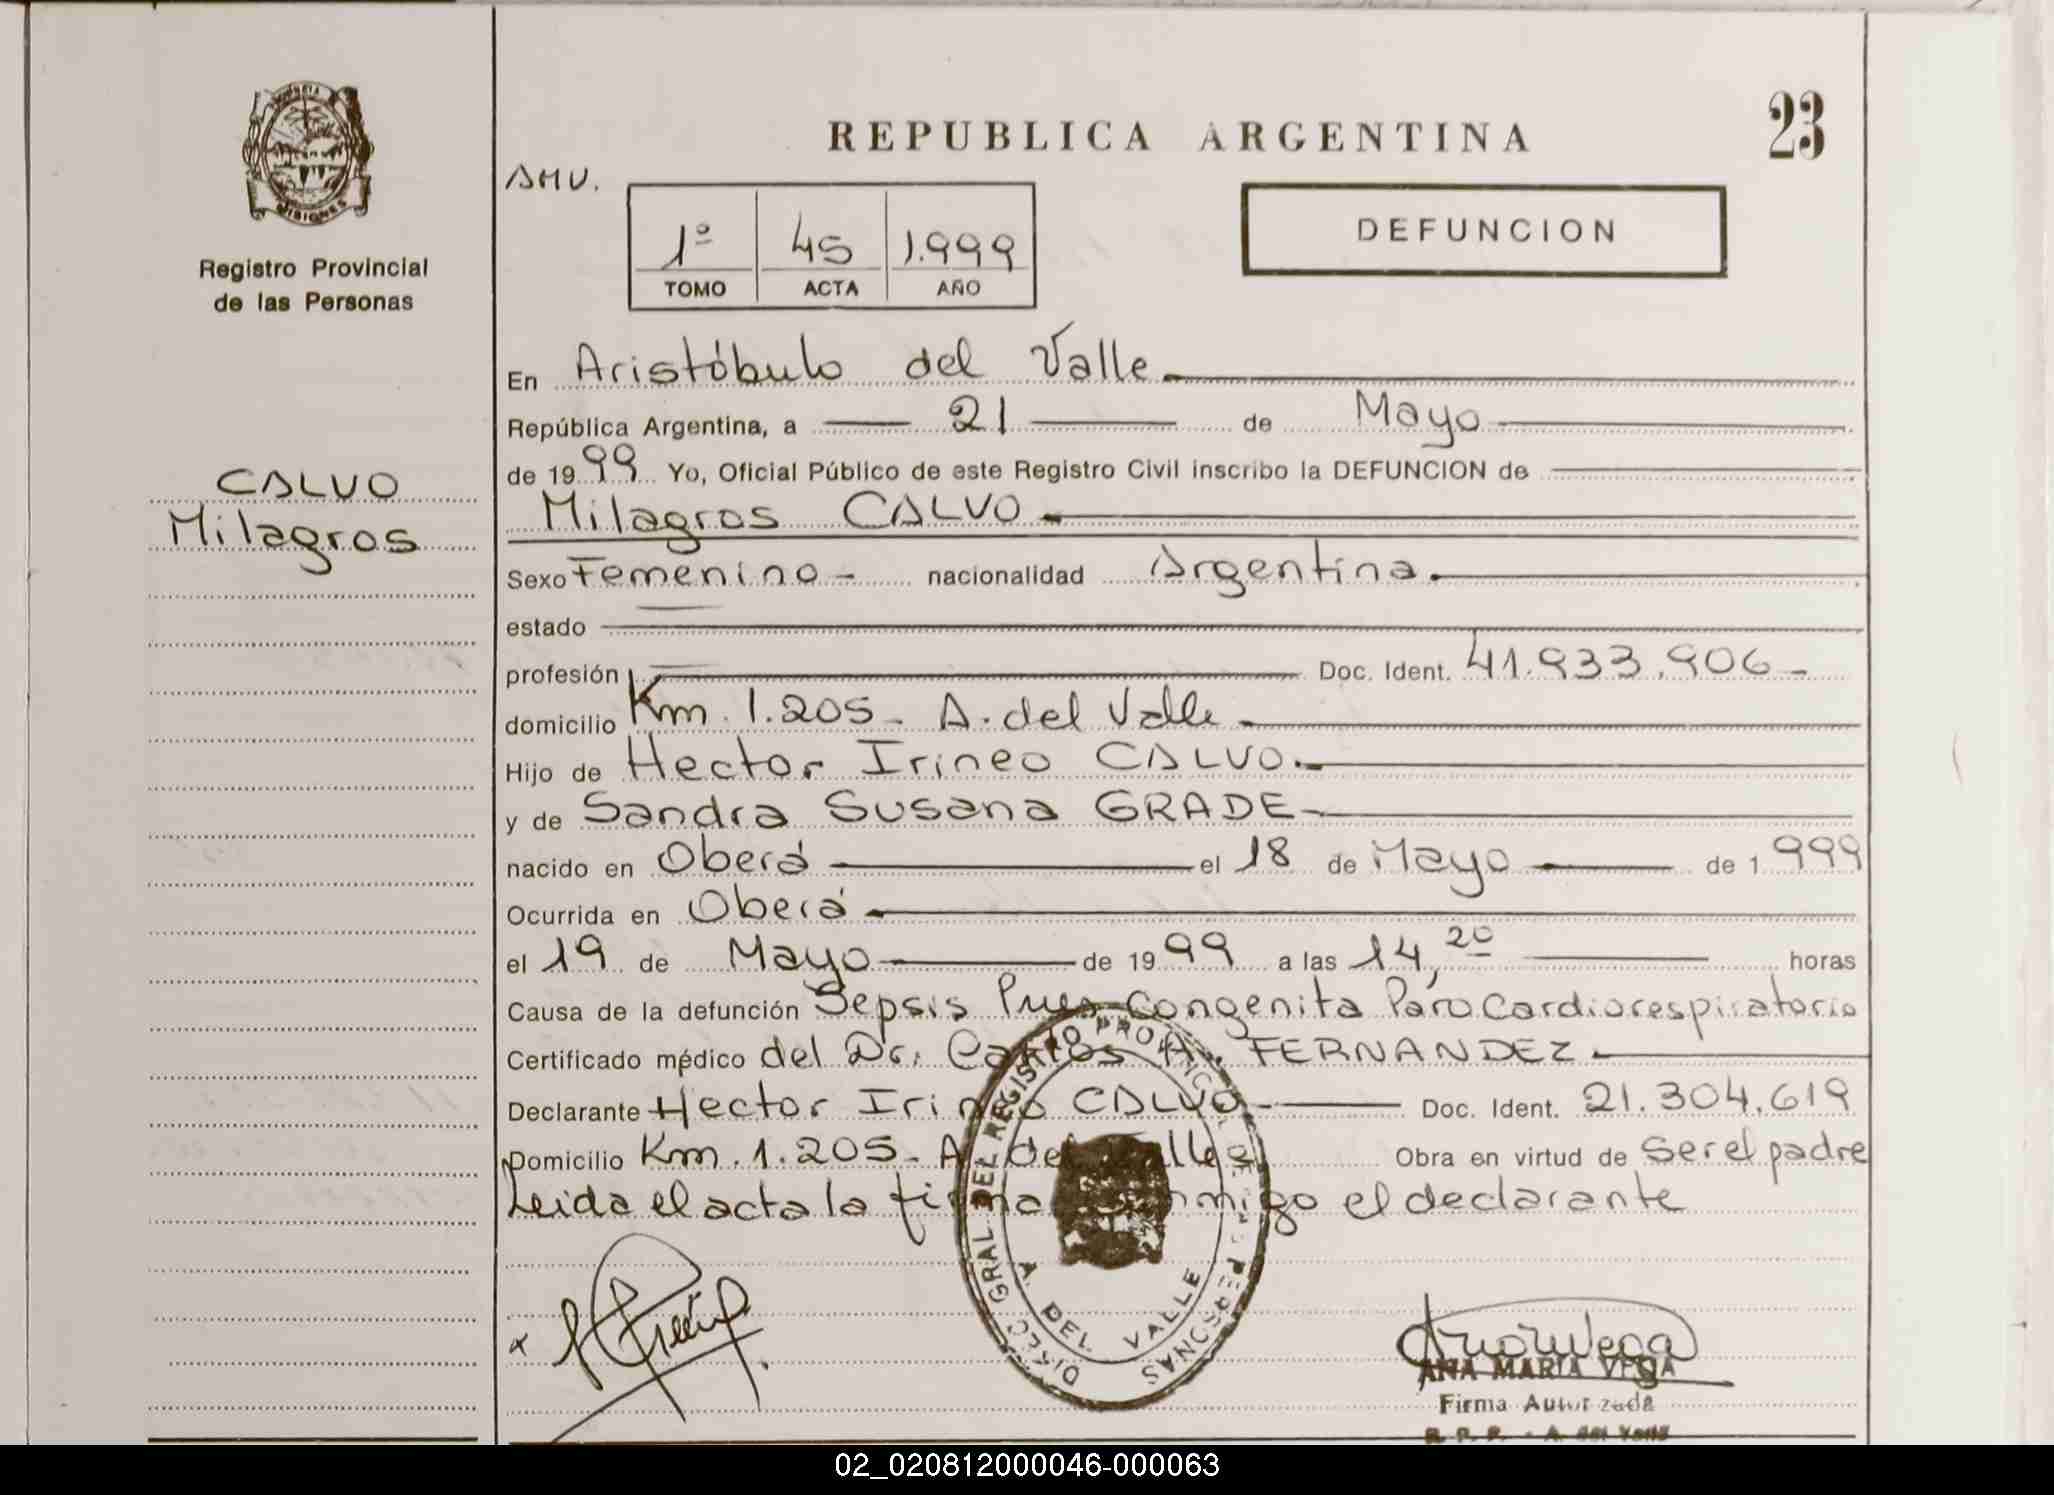 MISIONES
Registro Provincial
de las Personas
CALVO
Milagros
REPUBLICA ARGENTINA
23
AMV.
1º 45 1.999
TOMO ACTA AÑO
DEFUNCION
En Aristóbulo del Valle
República Argentina, a 21 de Mayo
de 1999 Yo, Oficial Público de este Registro Civil inscribo la DEFUNCION de
Milagros CALVO
Sexo Femenino - nacionalidad Argentina
estado
profesión Doc. Ident. 41.933.906-
domicilio Km. 1.205- A. del Valle
Hijo de Hector Irineo CALVO
y de Sandra Susana GRADE
nacido en Oberá el 18 de Mayo de 1.999
Ocurrida en Oberá
el 19 de Mayo de 1999 a las 14,20 horas
Causa de la defunción Sepsis Congenita Paro Cardiorespiratorio
Certificado médico del Dr. Carlos A. FERNANDEZ
Declarante Hector Irineo CALVO Doc. Ident. 21.304.619
Domicilio Km. 1.205- A. del Valle Obra en virtud de ser el padre
Leida el acta la firma conmigo el declarante
DIREC GRAL DEL REGISTRO PROVINCIAL DE LAS PERSONAS
A DEL VALLE
ANA MARIA VEGA
Firma Autorizada
R. P. P. - A. del Valle
02_020812000046-000063